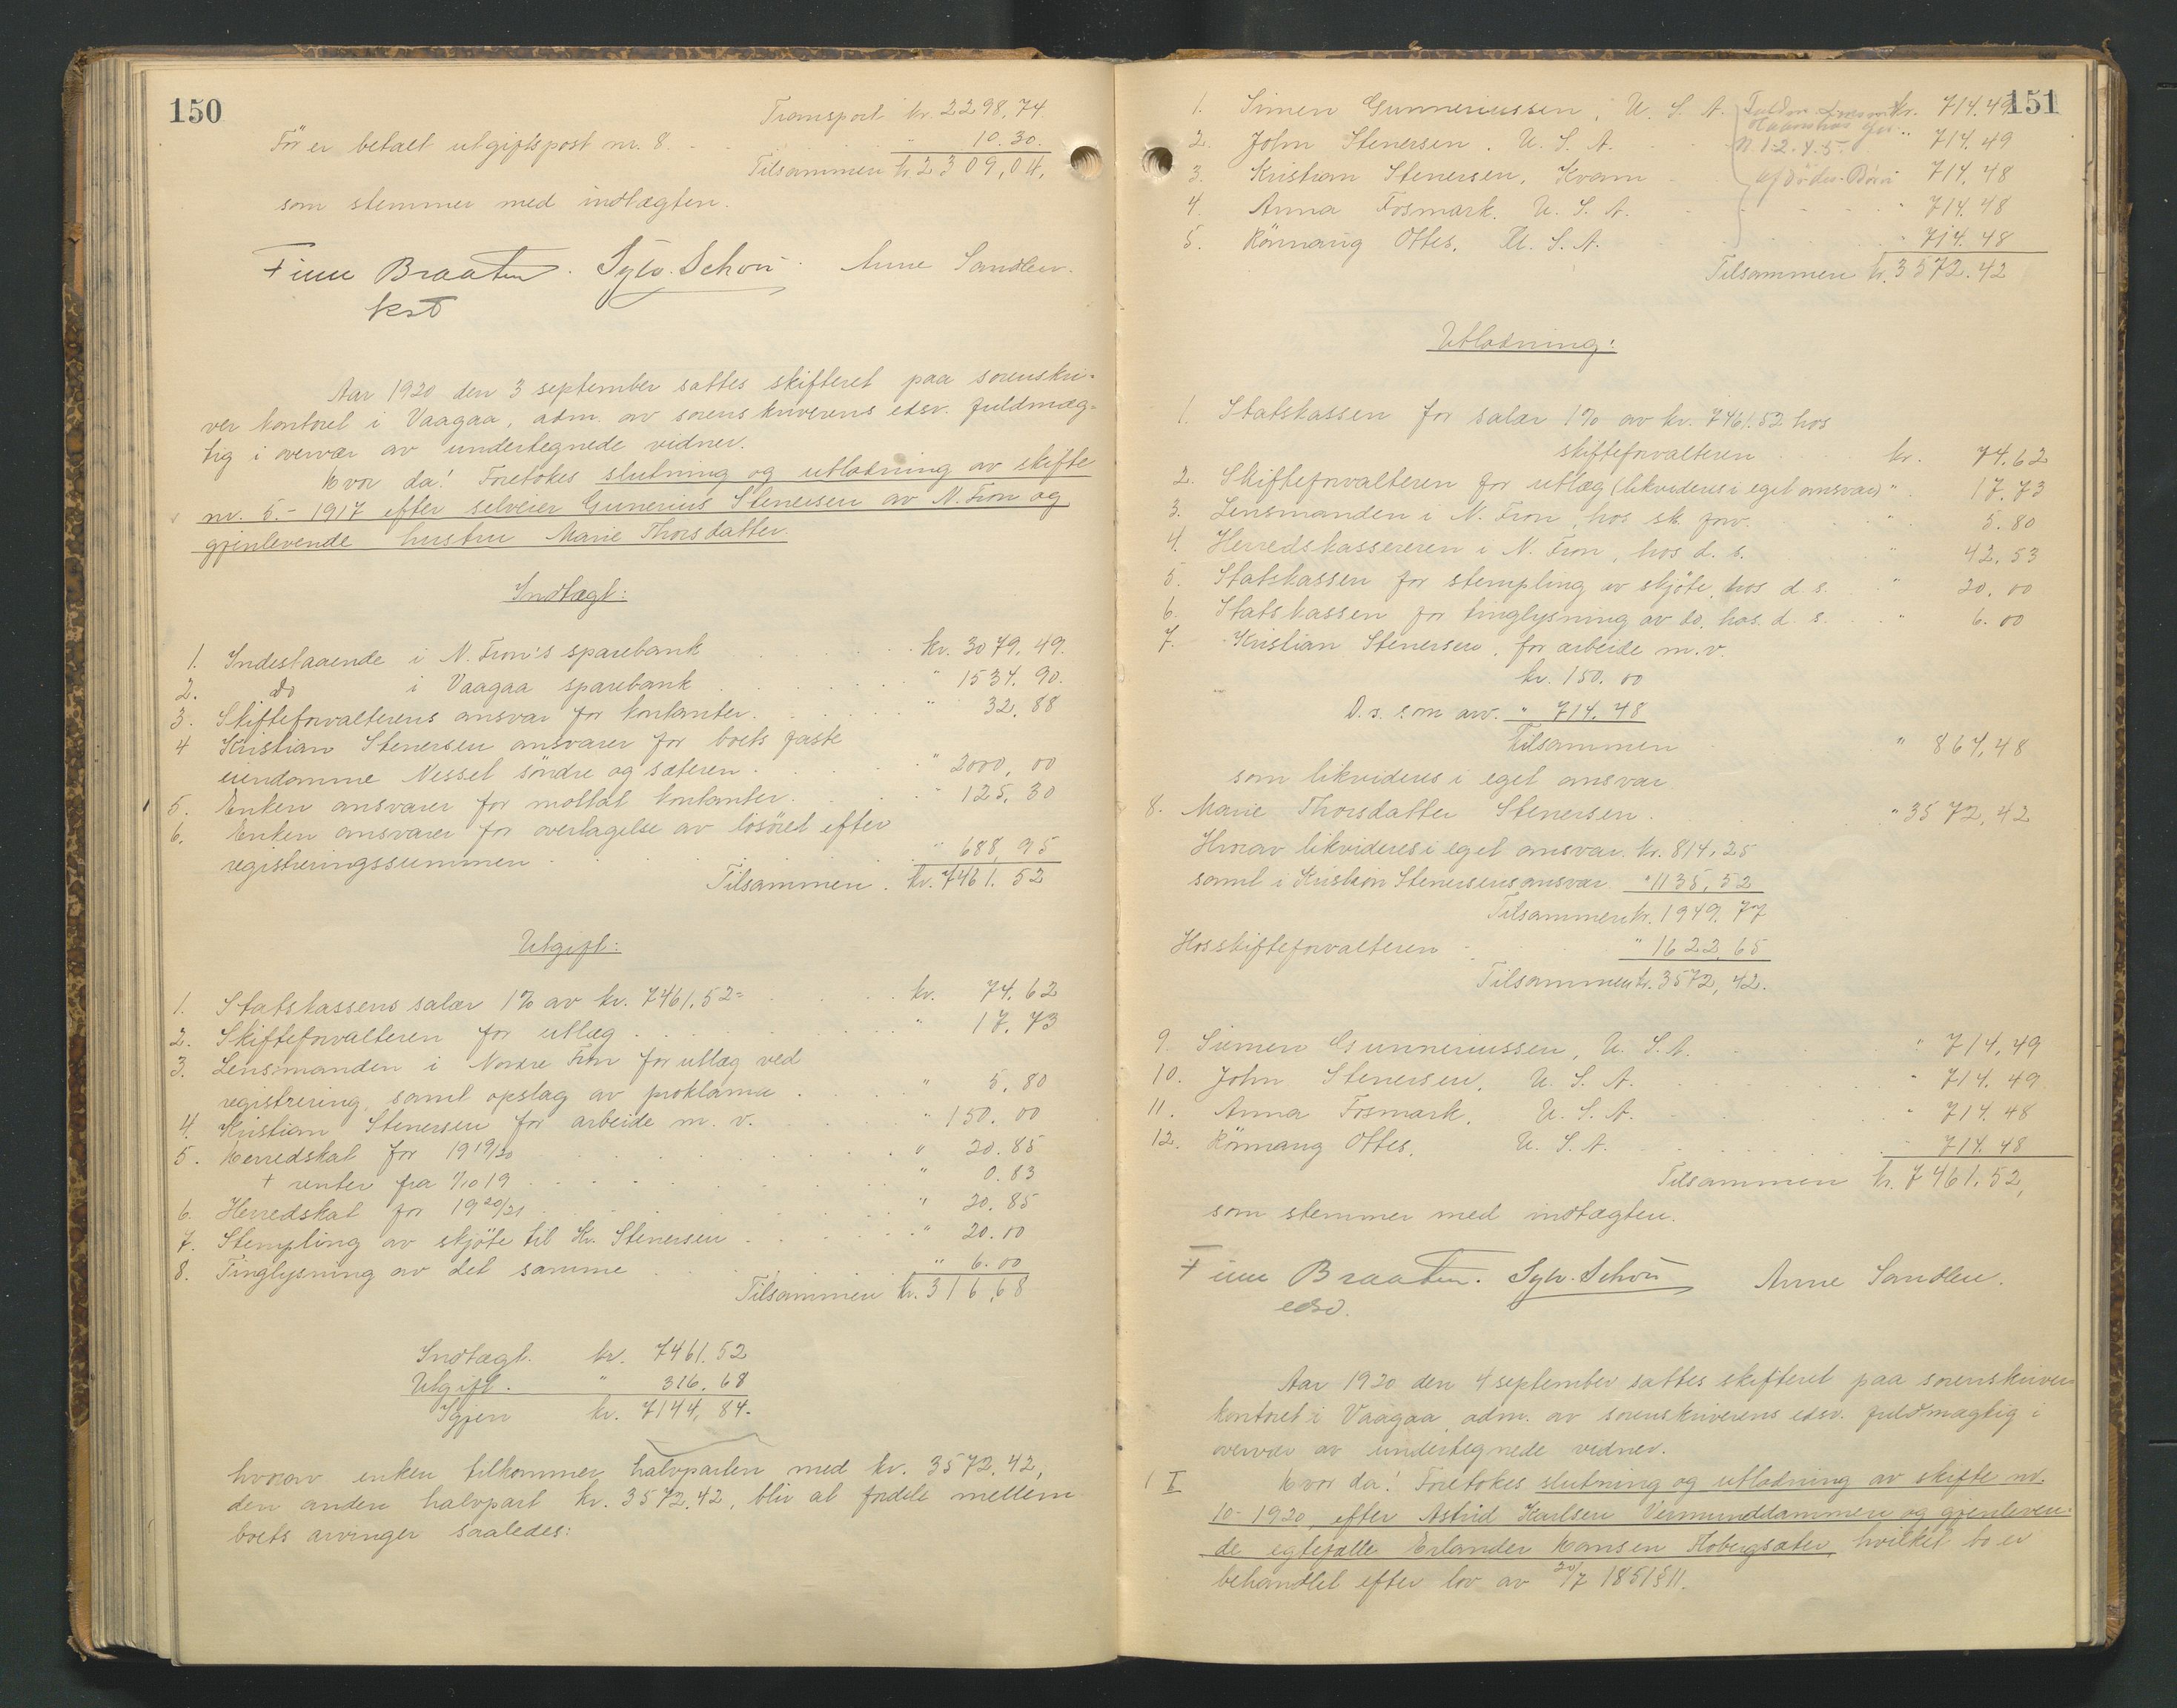 150
Transport kr. 2298,74
Før er betalt utgiftspost nr. 8. " 10.30.
Tilsammen kr. 2309,04.
som stemmer med indtægten.
Finn Braaten. Sylv. Schou. Anne Sandlen.
kst
Aar 1920 den 3 september sattes skifteret paa sorenskri-
ver kontoret i Vaagaa, adm. av sorenskriverens edsv. fuldmæg-
tig i overvær av undertegnede vidner.
Hvor da! Foretokes slutning og utlodning av skifte
nr. 5.- 1917 efter selveier Gunerius Stenersen av N. Fron og
gjenlevende hustru Marie Thorsdatter.
Indtægt:
1. Indestaaende i N. Fron's sparebank kr. 3079,49.
2. do i Vaagaa sparebank " 1534.90.
3. Skifteforvalterens ansvar for kontanter. " 32.88
4 Kristian Stenersen ansvarer for boets faste
eiendomme Nesset søndre og sæteren. " 2000,00
5. Enken ansvarer for mottat kontanter. " 125.30
6. Enken ansvarer for overtagelse av løsøret efter
registreringssummen " 688,95
Tilsammen. kr. 7461.52
Utgift:
1. Statskassens salær 1% av kr. 7461.52= kr. 74.62
2. Skifteforvalteren for utlæg " 17.73
3. Lensmanden i Nordre Fron for utlæg ved
registrering, samt opslag av proklama. " 5.80
4. Kristian Stenersen for arbeide m. v. " 150.00
5. Herredskat for 1919/20 " 20.85
+ renter fra 1/10 19 " 0.83
6. Herredskat for 1920/21 " 20.85
7. Stempling av skjøte til Kr. Stenersen " 20.00
8. Tinglysning av det samme " 6.00
Tilsammen kr. 316,68
Indtægt. kr. 7461.52
Utgift. " 316.68
Igjen kr. 7144,84.
hvorav enken tilkommer halvparten med kr. 3572.42,
den anden halvpart kr. 3572.42, bliv at fordele mellem
boets arvinger saaledes:
151
1. Simen Gunneriussen, U. S. A. kr. 714.49
2. John Stenersen. U. S. A. " 714.49
N. 1. 2. 4. 5.
3. Kristian Stenersen, Kvam 714.48
4. Anna Fosmark. U. S. A. " 714.48
5. Rønnaug Ottes. U. S. A. " 714.48
Tilsammen kr. 3572.42
Utlodning:
1. Statskassen for salær 1% av kr. 7461.52 hos
skifteforvalteren kr. 74.62
2. Skifteforvalteren for utlæg (likvideres i eget ansvar) " 17.73
3. Lensmanden i N. Fron, hos sk. forv. " 5.80
4. Herredskassereren i N. Fron, hos d. s. " 42.53
5. Statskassen for stempling av skjøte, hos d. s. " 20.00
6. Statskassen for tinglysning av do. hos. d. s. " 6.00
7. Kristian Stenersen, for arbeide m.v.
kr. 150.00
D. s. som arv. " 714.48
Tilsammen " 864,48
som likvideres i eget ansvar
8. Marie Thorsdatter Stenersen. " 3572,42
Hvorav likvideres i eget ansvar. kr. 814.25
samt i Kristian Stenersens ansvar " 1135,52
Tilsammen kr. 1949.77
Hos skifteforvalteren " 1622,65
Tilsammen kr. 3572,42.
9. Simen Gunneriussen, U. S. A. " 714,49
10. John Stenersen, U. S. A. " 714.49
11. Anna Fosmark, U. S. A. " 714.48
12. Rønnaug Ottes, U. S. A. 714.48
Tilsammen kr. 7461.52,
som stemmer med indtægten.
Finn Braaten. Sylv. Schou Anne Sandlen.
edsv.
Aar 1920 den 4 september sattes skifteret paa sorenskriver-
kontoret i Vaagaa, adm. av sorenskriverens edsv. fuldmægtig i
overvær av undertegnede vidner.
I Hvor da! Foretokes slutning og utlodning av skifte nr.
10- 1920, efter Astrid Karlsen Vermunddammen og gjenleven-
de egtefælle Erlander Hansen Flobergsæter, hvilket bo er
behandlet efter lov av 30/7 1851 § 11.